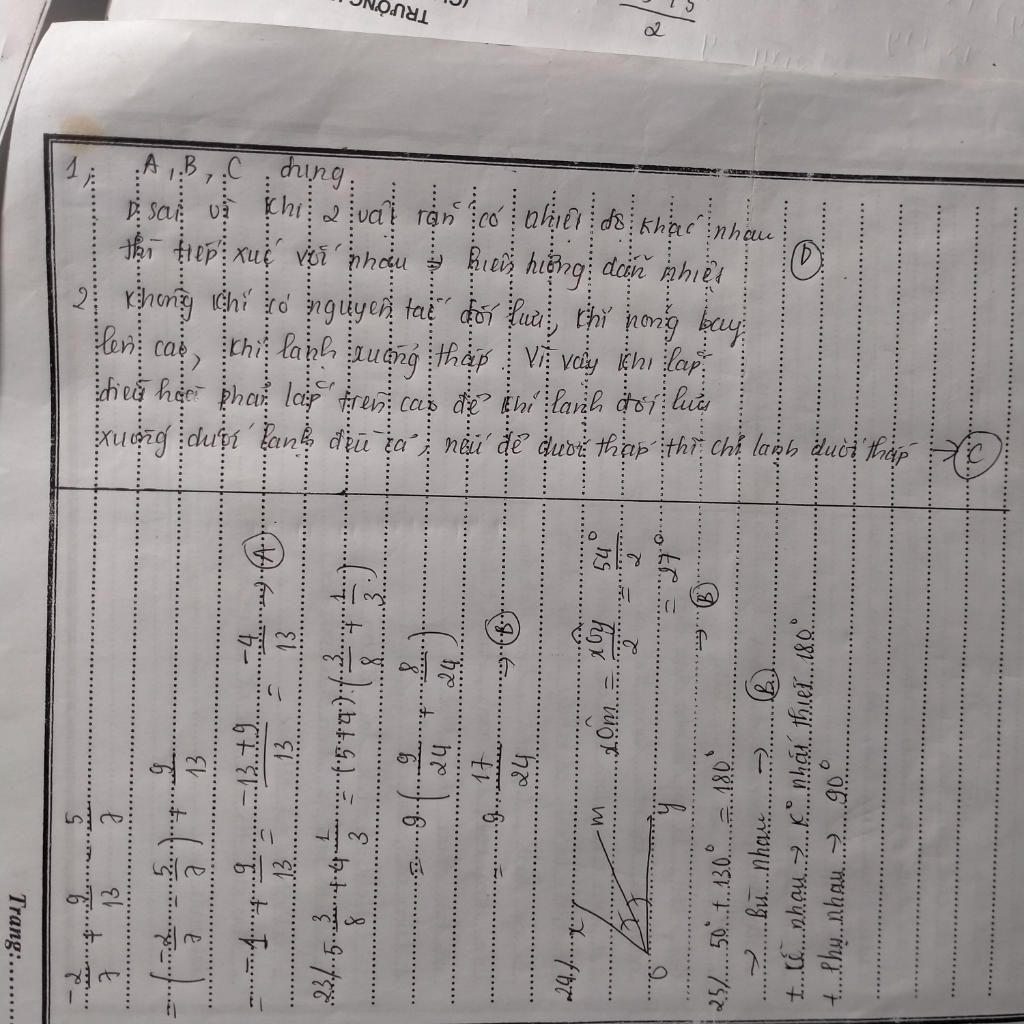 TRƯỜNG
2
1, A, B, C đúng
D sai vì khi 2 vật rắn có nhiệt độ khác nhau
thì tiếp xúc với nhau → hiện tượng dẫn nhiệt (D)
2 Không khí có nguyên tắc đối lưu, khí nóng bay
lên cao, khí lạnh xuống thấp. Vì vậy khi lắp
điều hòa phải lắp trên cao để khí lạnh đối lưu
xuống dưới lạnh đều cả, nếu để dưới thấp thì chỉ lạnh dưới thấp → (C)
-2/7 + 9/13 - 5/7
= (-2/7 - 5/7) + 9/13
= -1 + 9/13 = -13+9/13 = -4/13 → (A)
23/ 5 3/8 + 4 1/3 = (5+4).(3/8 + 1/3)
= 9 (9/24 + 8/24)
= 9 17/24 → (B)
24/ x m y O
xOm = xOy/2 = 54°/2
= 27°
→ (B)
25/ 50° + 130° = 180°
→ bù nhau → (B)
+ kề nhau → K° nhất thiết 180°
+ Phụ nhau → 90°
Trang: